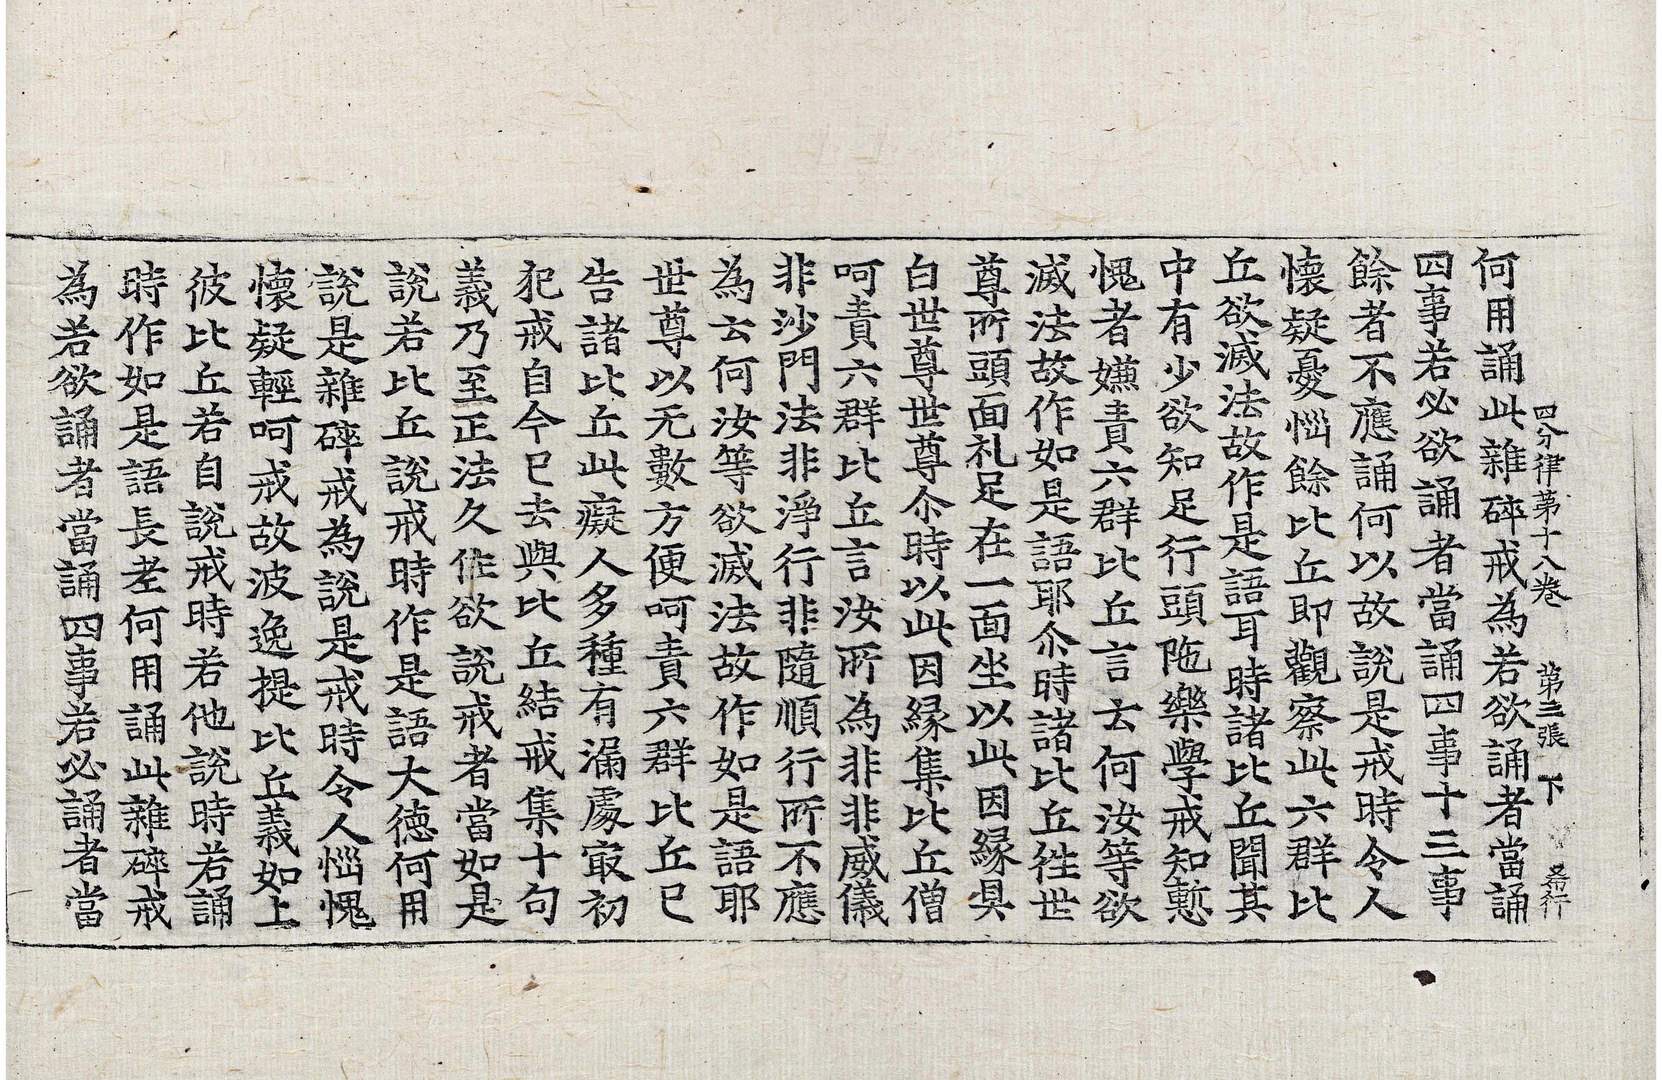 四分律第十八卷 第三張 下
何用誦此雜碎戒為若欲誦者當誦
四事若必欲誦者當誦四事十三事
餘者不應誦何以故說是戒時令人
懷疑憂惱餘比丘即觀察此六群比
丘欲滅法故作是語耳時諸比丘聞其
中有少欲知足行頭陁樂學戒知慙
愧者嫌責六群比丘言云何汝等欲
滅法故作如是語耶尒時諸比丘徃世
尊所頭面礼足在一面坐以此因緣具
白世尊世尊尒時以此因緣集比丘僧
呵責六群比丘言汝所為非非威儀
非沙門法非淨行非隨順行所不應
為云何汝等欲滅法故作如是語耶
世尊以无數方便呵責六群比丘已
告諸比丘此癡人多種有漏處冣初
犯戒自今已去與比丘結戒集十句
義乃至正法久住欲說戒者當如是
說若比丘說戒時作是語大德何用
說是雜碎戒為說是戒時令人惱愧
懷疑輕呵戒故波逸提比丘義如上
彼比丘若自說戒時若他說時若誦
時作如是語長老何用誦此雜碎戒
為若欲誦者當誦四事若必誦者當